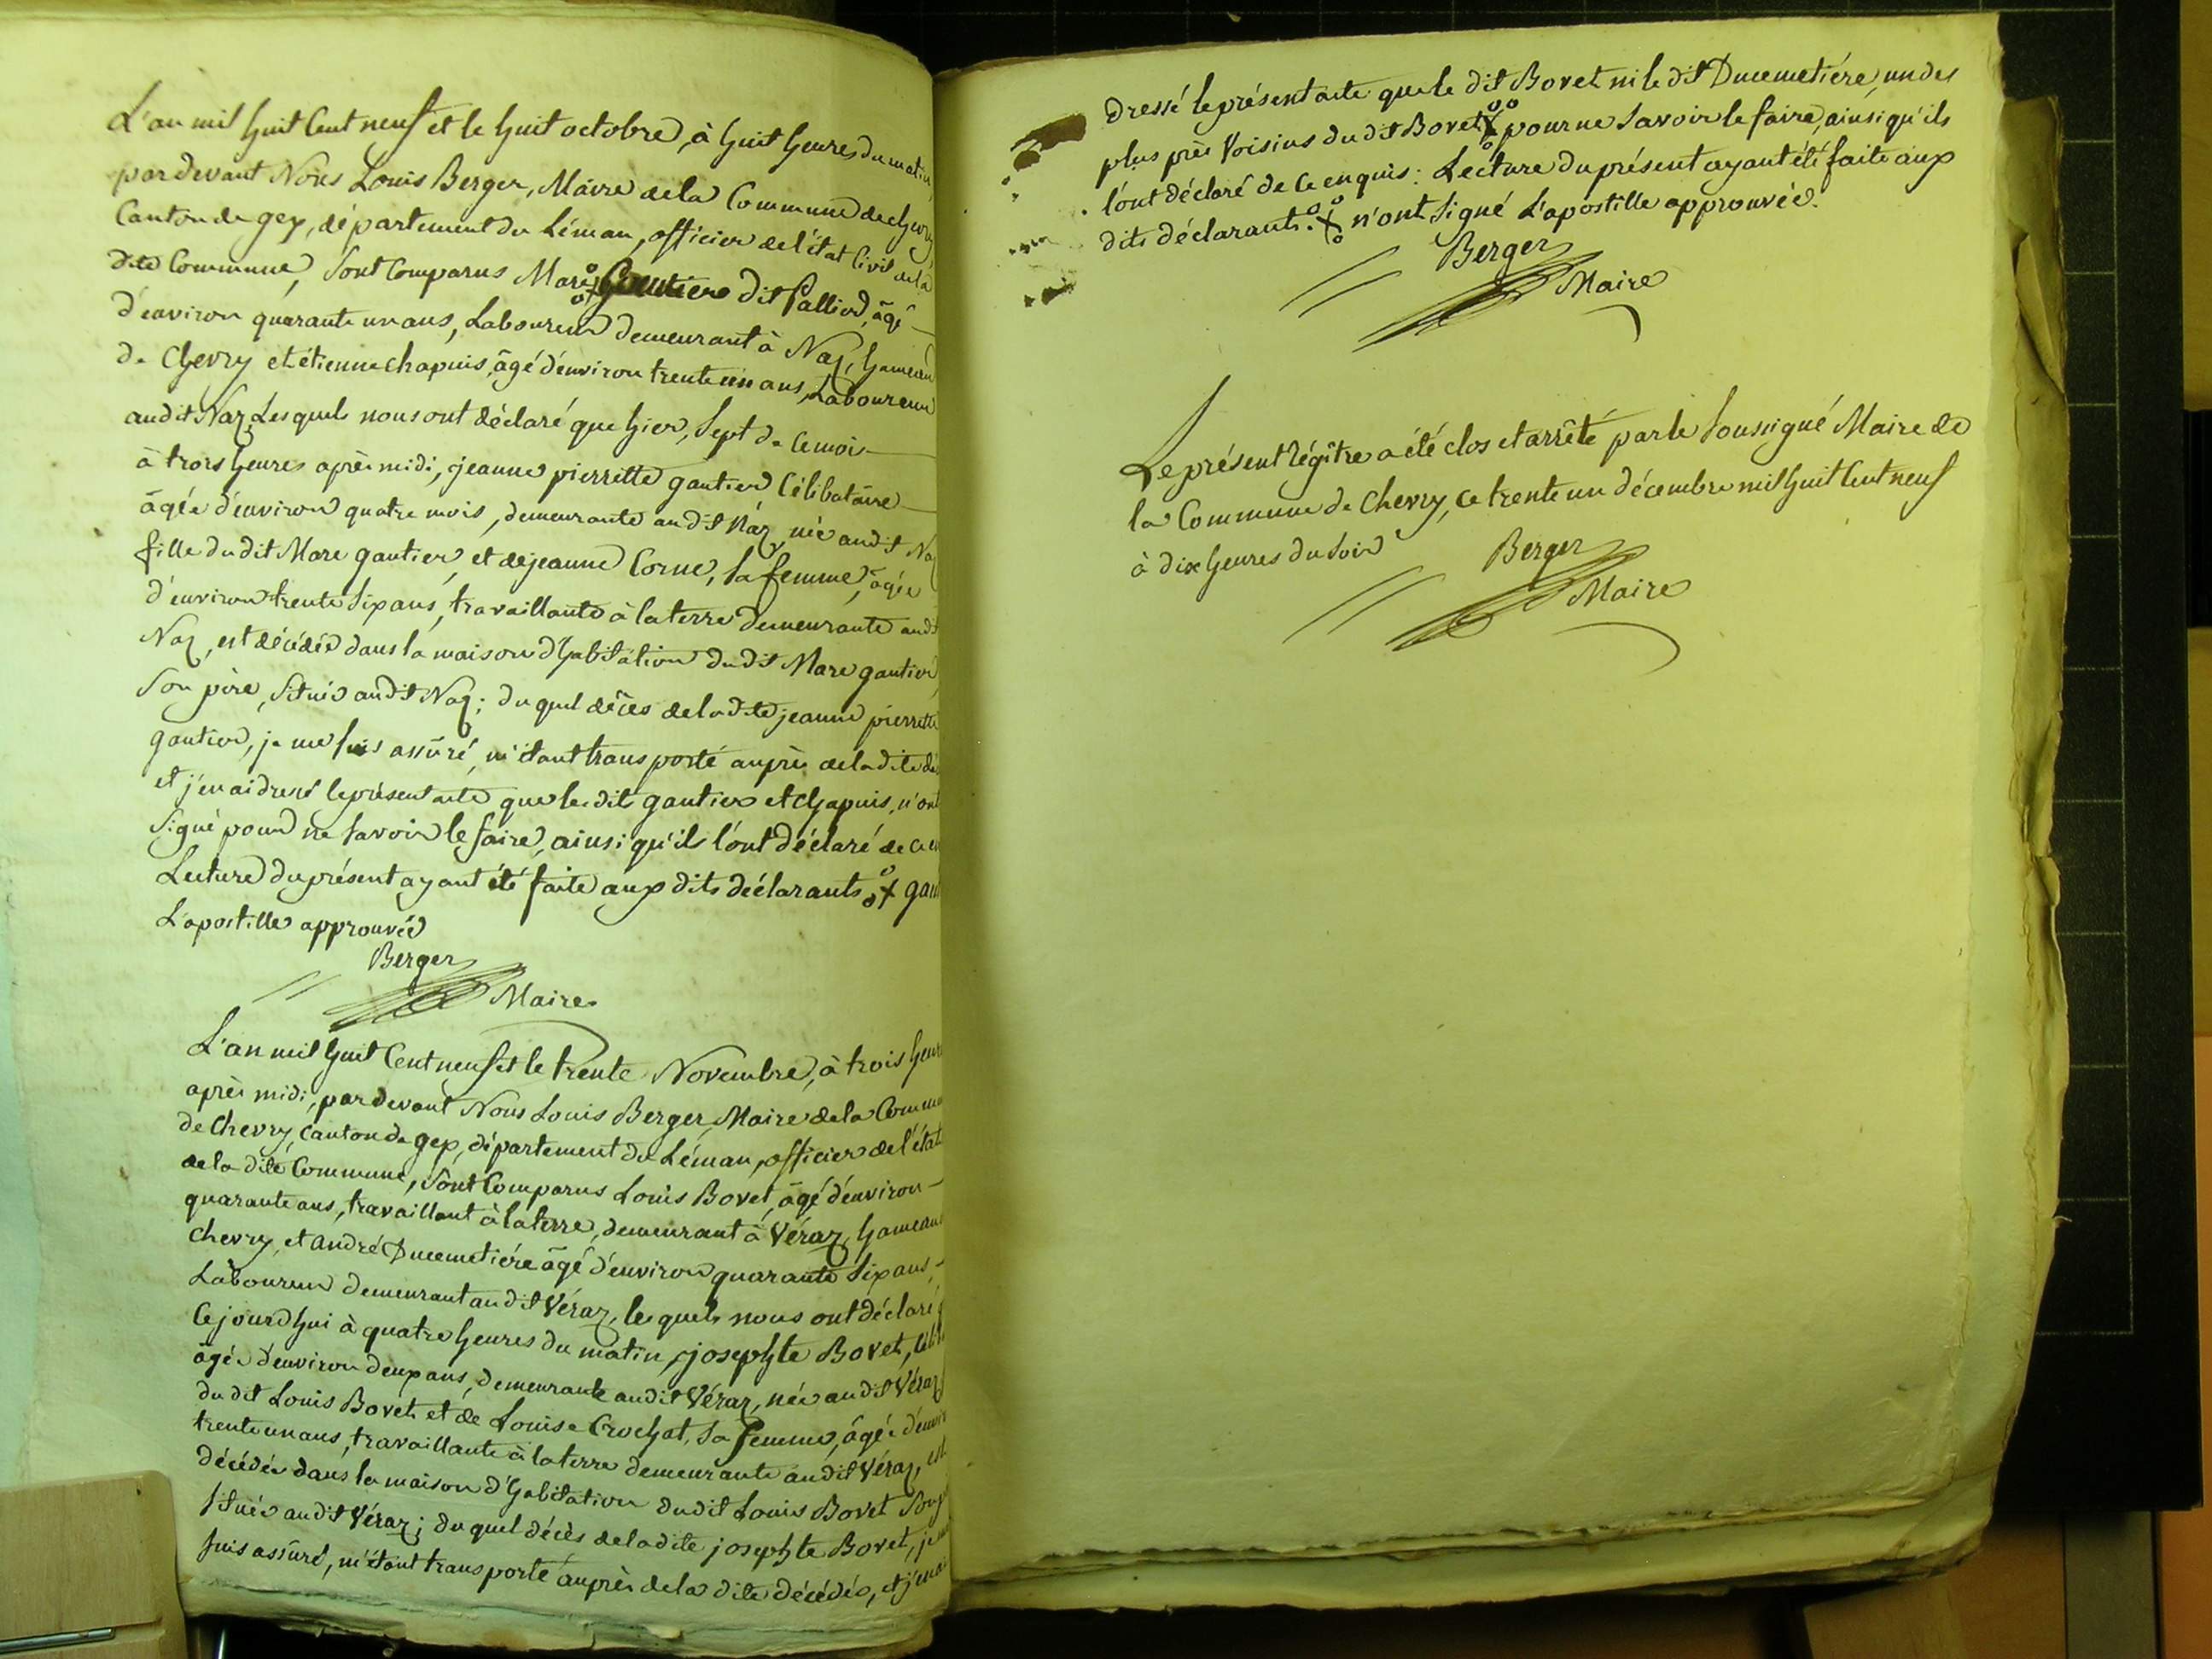 L'an mil huit Cent neuf et le huit octobre, à huit heures du matin,
par devant Nous Louis Berger, Maire de la Commune de chevry
Canton de gex, département du Léman, officier de l'état Civil de la
dite Commune, Sont Comparus Marc dit Pallier, âgé
d'environ quarante un ans, Laboureur demeurant à Naz, hameau
de Chevry et étienne chapuis, âgé d'environ trente un ans, Laboureur
audit Naz, Lesquels nous ont déclaré que hier, Sept de Ce mois
à trois heures après midi, jeanne pierrette gautier Célibataire
âgée d'environ quatre mois, demeurante audit Naz, née audit Naz
fille du dit Marc gautier, et de jeanne Corne, Sa femme, âgée
d'environ trente Six ans, travaillante à la terre demeurante audit
Naz, est décédée dans la maison d'habitation du dit Marc gautier,
Son père, Située audit Naz; du quel décès de la dite jeanne pierrette
gautier, je me suis assûré, m'étant transporté auprès de la dite
et j'en ai dressé le présent acte que les dits gautier et chapuis, n'ont
Signé pour ne Savoir le faire, ainsi qu'ils l'ont déclaré de ce
Lecture du présent ayant été faite aux dits déclarants
L'apostille approuvée
Berger
Maire
L'an mil huit Cent neuf et le trente Novembre, à trois heures
après midi, par devant Nous Louis Berger, Maire de la Commune
de Chevry, Canton de gex, département du Léman, officier de l'état
de la dite Commune, Sont Comparus Louis Bovet, âgé d'environ
quarante ans, travaillant à la terre, demeurant à Véraz, hameau
Chevry, et andré Ducemetiére âgé d'environ quarante Six ans,
Laboureur demeurant audit Véraz, les quels nous ont déclaré
Ce jourd'hui à quatre heures du matin, josephte Bovet,
âgée d'environ deux ans, demeurante audit Véraz, née audit Véraz
du dit Louis Bovet et de Louise Crochat, Sa femme, âgée
trente un ans, travaillante à la terre demeurante audit Véraz, est
décédée dans la maison d'habitation dudit Louis Bovet Son
Située audit Véraz; du quel décès de la dite josephte Bovet, je
suis assûré, m'étant transporté auprès de la dite décédée, et j'en ai
dressé le présent acte que le dit Bovet ni le dit Ducemetiére, un des
plus près Voisins du dit Bovet pour ne Savoir le faire, ainsi qu'ils
l'ont déclaré de Ce enquis: Lecture du présent ayant été faite aux
dits déclarants. n'ont Signé L'apostille approuvée.
Berger
Maire
Le présent régître a été clos et arrêté par le Soussigné Maire de
la Commune de Chevry, ce trente un décembre mil huit Cent neuf
à dix heures du Soir
Berger
Maire